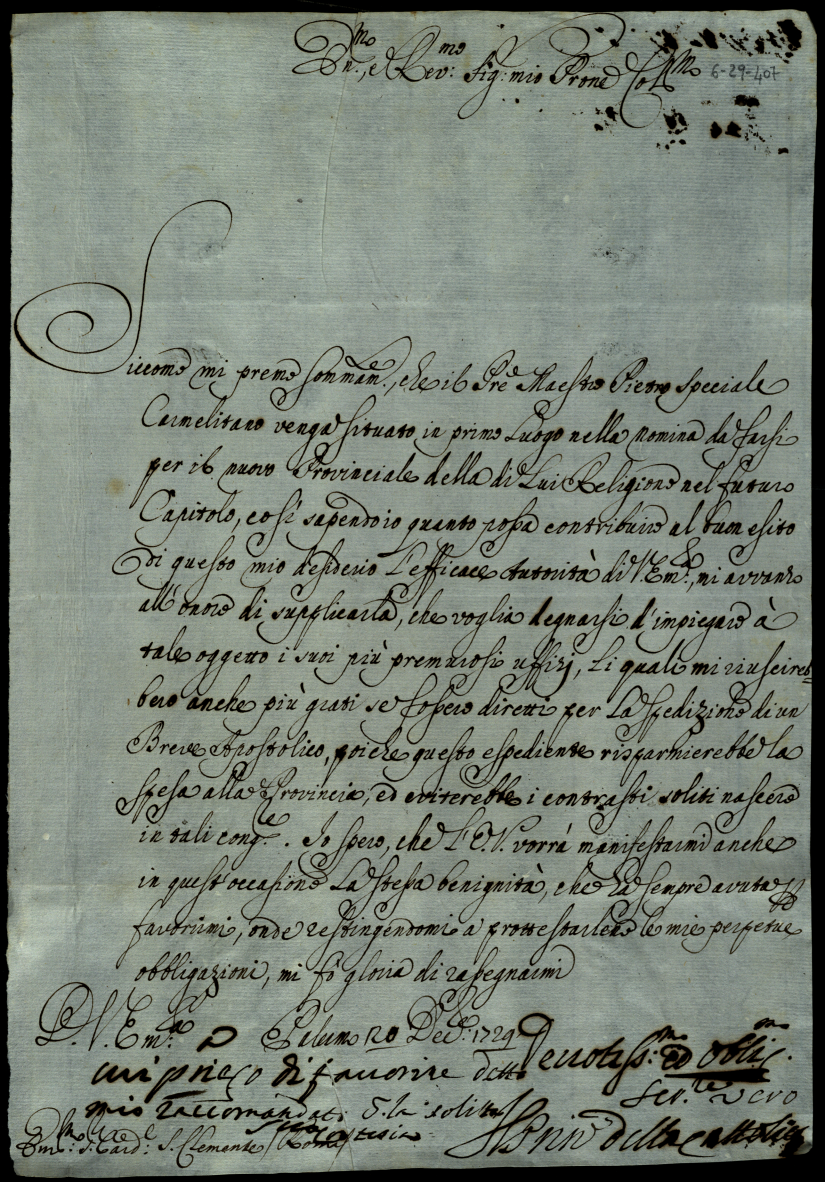 Em.mo, e Rev.mo Sig: mio Prone Coll.mo
6-29-407
Siccome mi preme sommam.e, che il Pre Maestro Pietro Speciale
Carmelitano venga situato in primo luogo nella nomina da farsi
per il nuovo Provinciale della di Lui Religione nel futuro
Capitolo, così sapendo io quanto possa contribuire al buon esito
di questo mio desiderio l'efficace autorità di V. Em.a, mi avvanzo
all'onore di supplicarla, che voglia degnarsi d'impiegare à
tale oggetto i suoi più premurosi uffizj, li quali mi riuscireb=
bero anche più grati se fossero diretti per la spedizione di un
Breve Apostolico, poiche questo espediente risparmierebbe la
spesa alla Provincia, ed eviterebbe i contrasti soliti nascere
in tali cong.e. Io spero, che l'E.V. vorrà manifestarmi anche
in quest'occasione la stessa benignità, che hà sempre avuta
favorirmi, onde restingendomi a prottestarlene le mie perpetue
obbligazioni, mi fò gloria di rassegnarmi
D. V. Em.a Palermo 20 Dec.e 1729
Devotiss.mo ed oblig.mo
mi priego di favorire detto
Ser.re vero
mio raccomandat. la solita
sua
Em.mo S. Card.e S. Clemente Roma
Il Prin.e della Cattolica